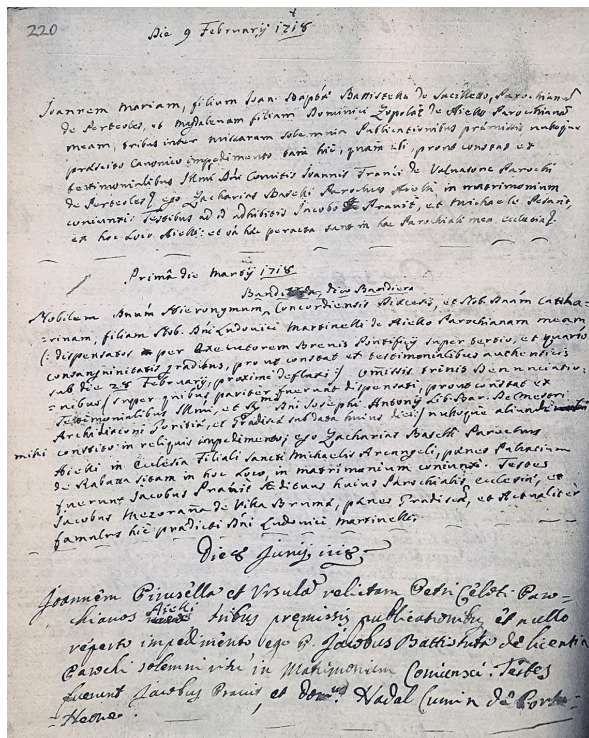 220
Die 9 Februarij 1718
Joannem Mariam, filium Joan: Baptæ Battistella de Saciletto, Parochianũ
de Perteole, et Magdalenam filiam Dominici Zopolat de Aiello Parochianã
meam, tribus inter missarum solemnia Publicationibus præmissis nulloque
præscito Canonico impedimento tam hic, quam ibi, prout constat ex
testimonialibus Illmi Dñi Comitis Joannis Franci de Valvasone Parochi
de Perteole, ego Zacharias Baselli Parochus Aielli in matrimonium
coniunxi: Testibus ad id adhibitis Jacobo Pravit, et Michaele Pesarit,
ex hoc Loco Aielli; et hæc peracta sunt in hac Parochiali mea ecclesia
Prima die Martij 1718
Bandiera, dico Bandiera
Nobilem Dnum Hieronymum, Concordiensis Diæcesis, et Nob. Dnam Catha=
=rinam, filiam Nob. Dñi Ludovici Martinelli de Aiello Parochianam meam
(: dispensatos per executorem Brevis Pontificij super tertio, et quarto
consanguinitatis gradibus, prout constat ex testimonialibus authenticis
sub die 28 February, proximè deflaxi) omissis trinis Denunciatio=
=nibus / super quibus pariter fuerunt dispensati, prout constat ex
Testimonialibus Illmi, et Dñi Josephi Antonij Lib. Bar. Delmestri
Archidiaconi Goritiæ, et Gradiscæ sub data huius diei / nulloque aliunde
mihi constito in reliquis impedimento; ego Zacharias Baselli Parochus
Aielli in Ecclesia Filiali Sancti Michaelis Arcangeli, pænes Palatium
de Rabatta sitam in hoc Loco, in matrimonium coniunxi. Testes
fuerunt Jacobus Pravit Ædituus huius Parochialis ecclesiæ, et
Jacobus de Villa Bruma, pænes Gradiscã, et Actualiter
famulus hic prædicti Dñi Ludovici Martinelli.
Die 8 Junij 1718
Joannem et Ursulã relictam Petri Paro=
chianos Aielli tribus premissis publicationibus et nullo
reperto impedimento ego P. Jacobus Battistuta de licentia
Parochi solemni ritu in Matrimonium Coniunxi. Testes
fuerunt Jacobus Pravit, et Nadal Cumin de